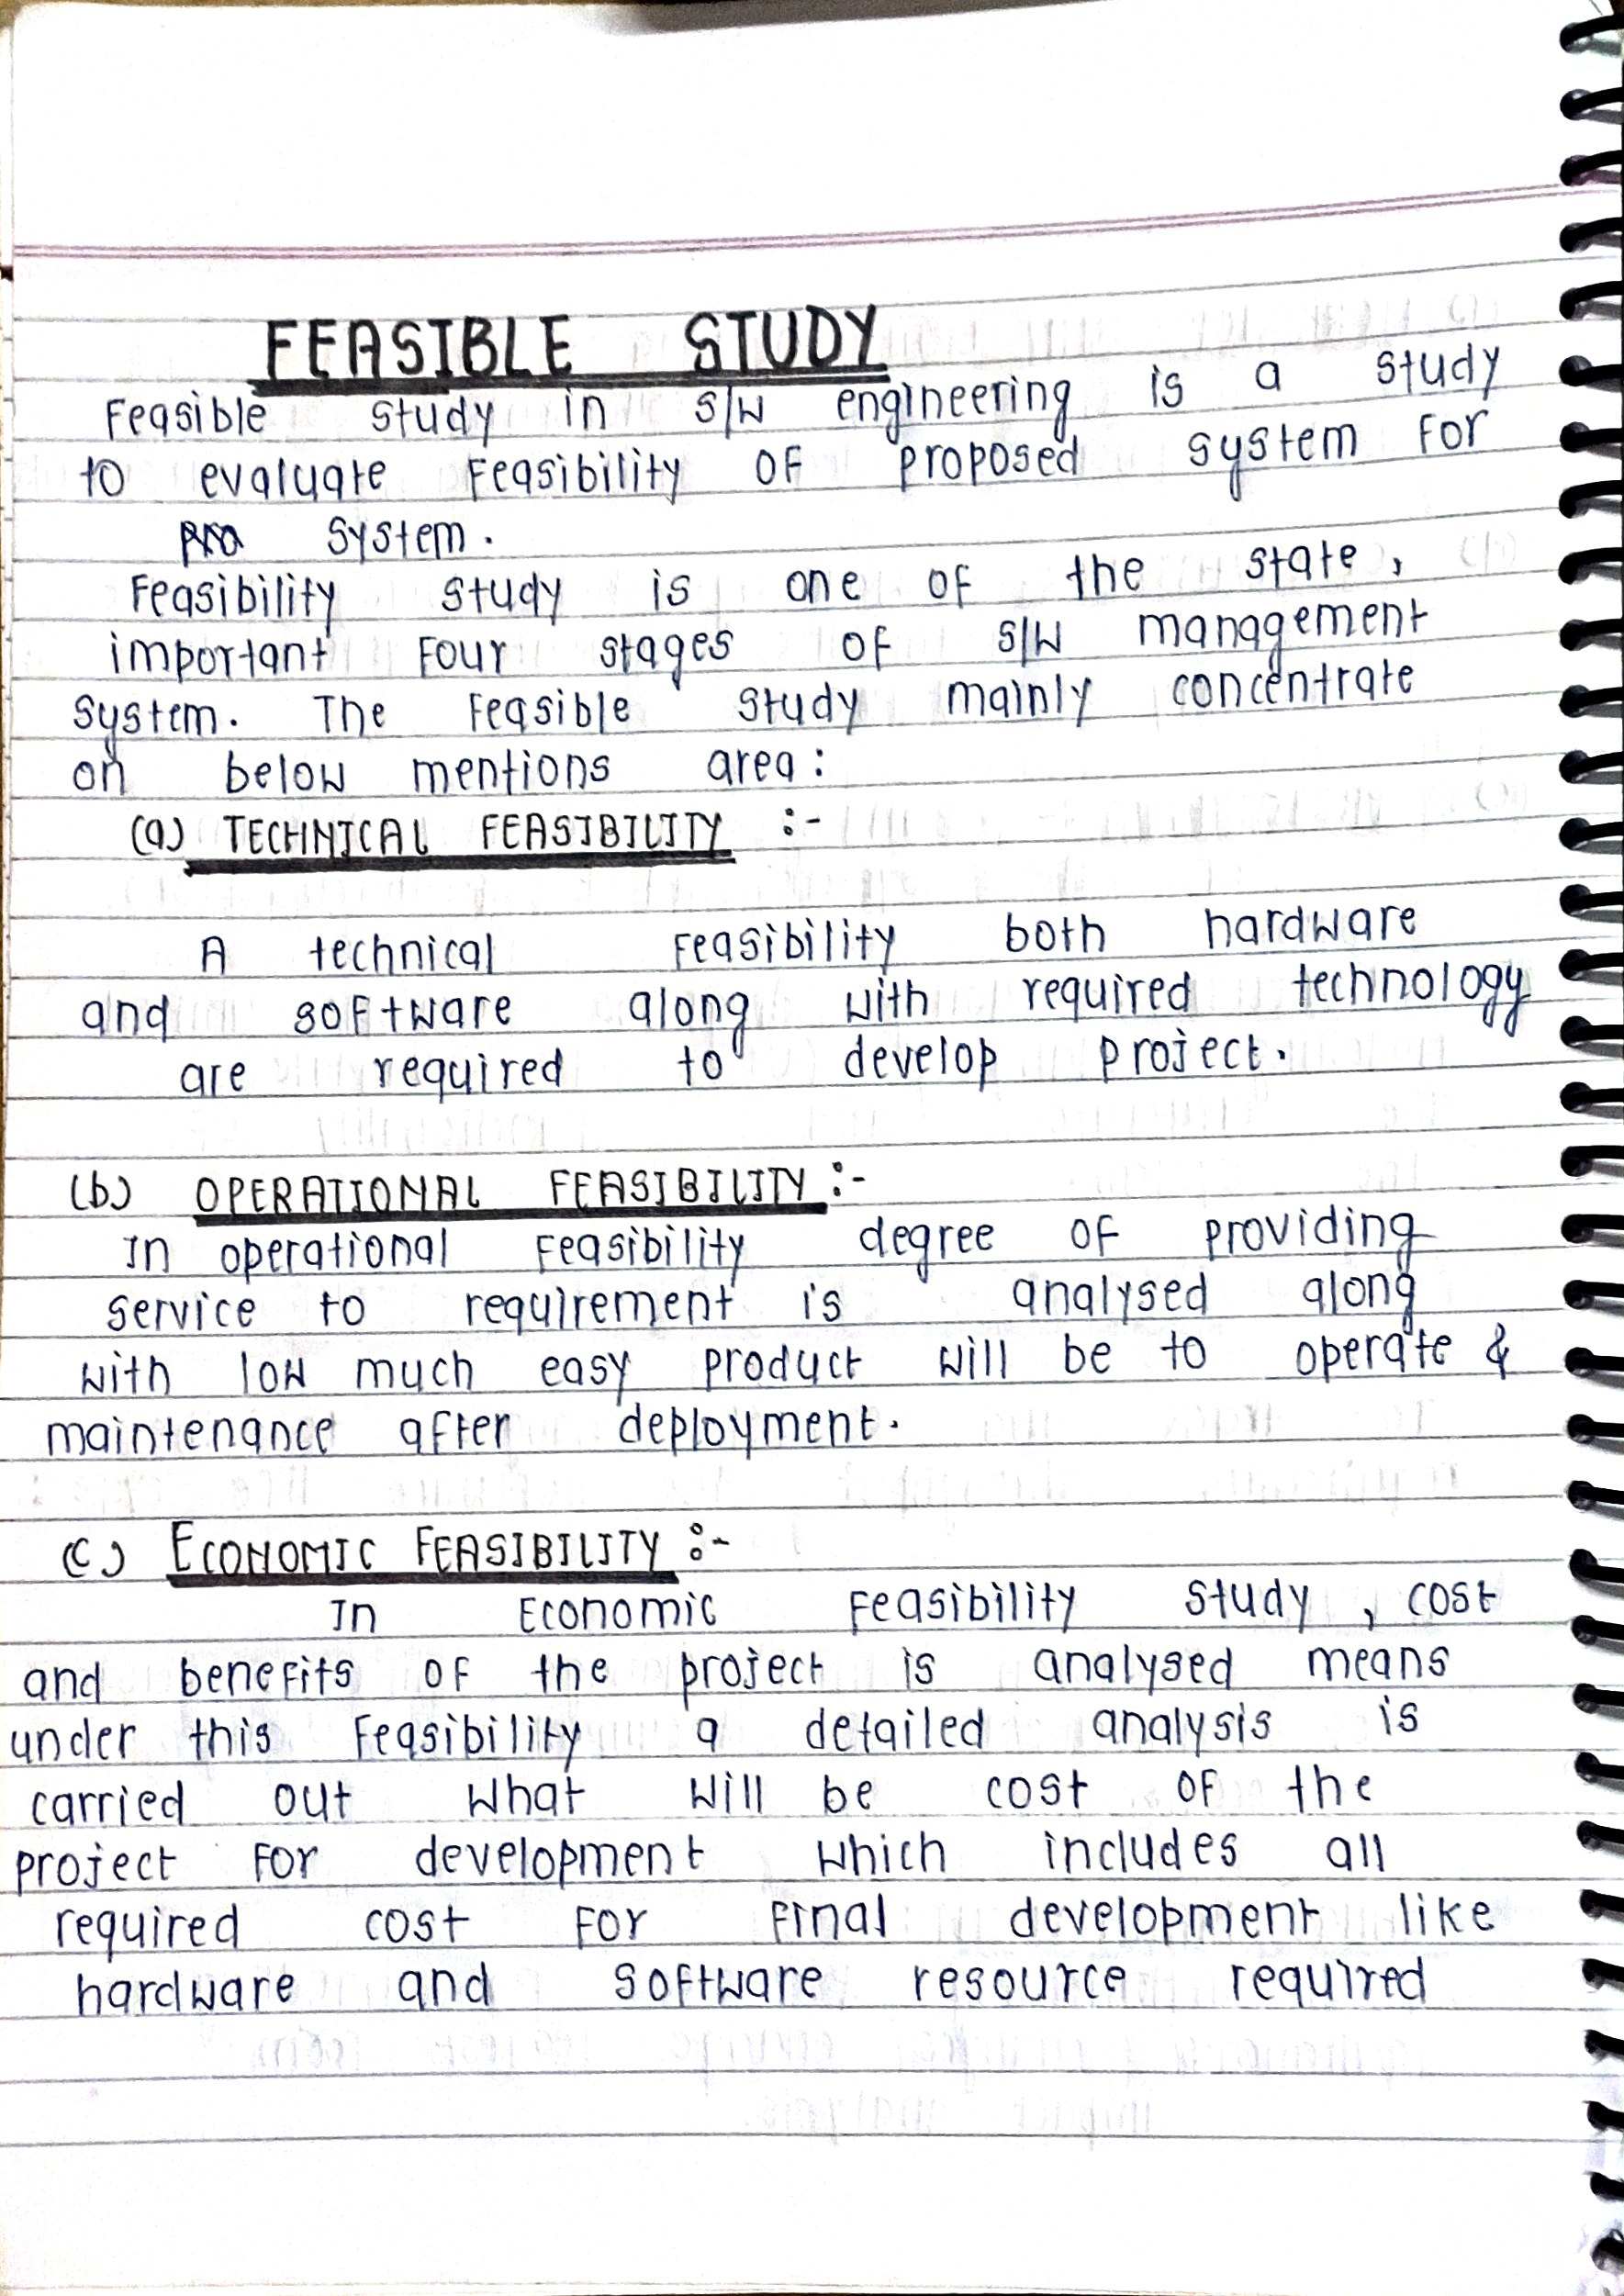 FEASIBLE STUDY
Feasible study in S/W engineering is a study
to evaluate Feasibility OF proposed system For
system.
Feasibility study is one of the state,
important Four stages OF S/W management
system. The Feasible study mainly concentrate
on below mentions area:
(a) TECHNICAL FEASIBILITY :-
A technical Feasibility both hardware
and software along with required technology
are required to develop project.
(b) OPERATIONAL FEASIBILITY :-
In operational Feasibility degree OF providing
service to requirement is analysed along
with low much easy product will be to operate &
maintenance after deployment.
(c) ECONOMIC FEASIBILITY :-
In Economic Feasibility study, cost
and benefits OF the project is analysed means
under this Feasibility a detailed analysis is
carried out what will be cost OF the
project For development which includes all
required cost For Final development like
hardware and software resource required